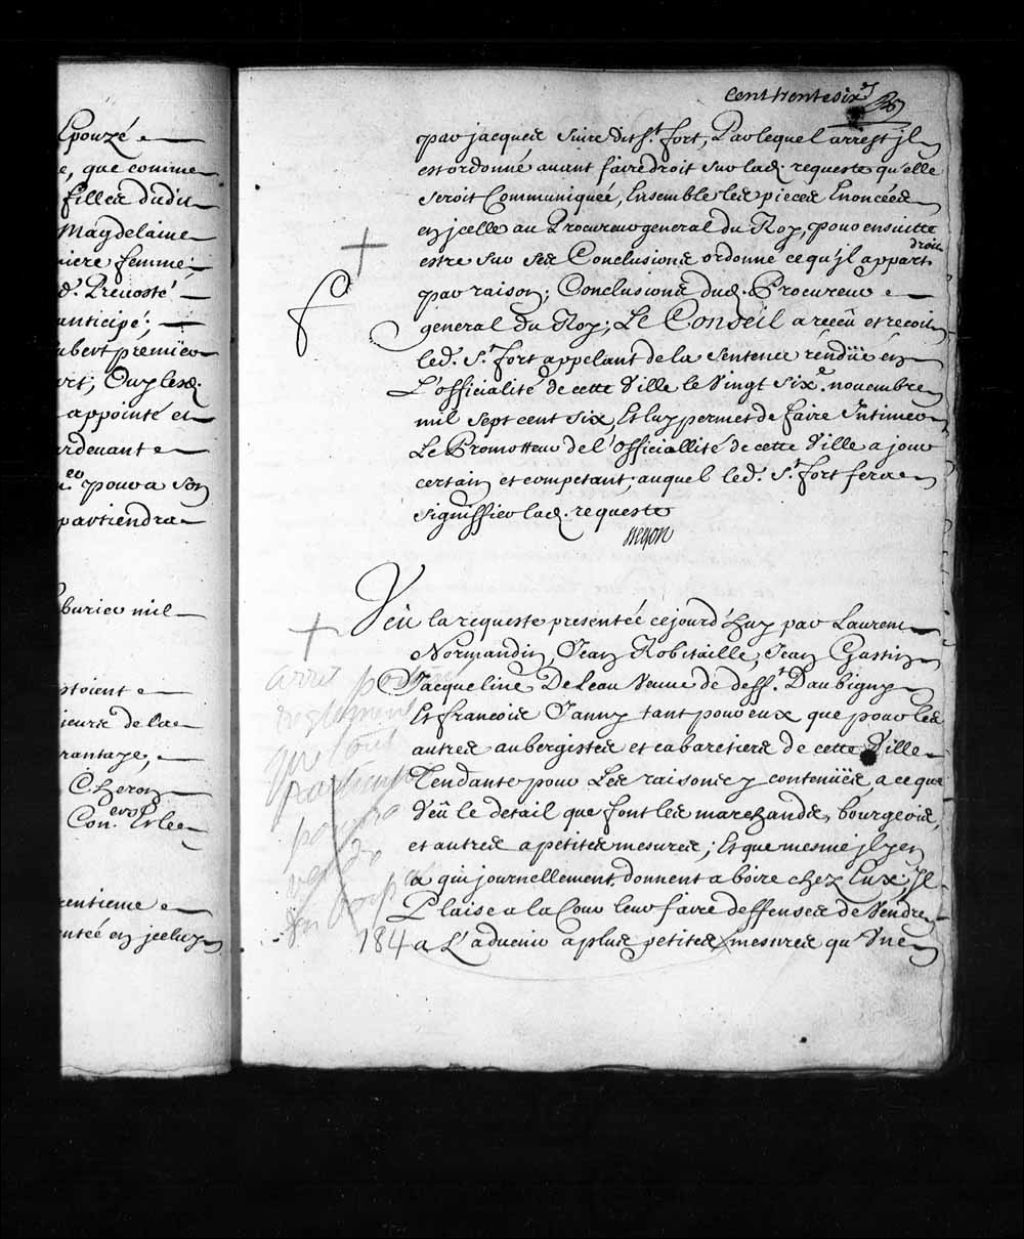 Epouzé
e, que comme
filles dudit
Magdelaine
niere femme;
d. Prevosté
anticipé;
ubert premier
rt; Ouy lesd.
appointé et
rdevant
pour a son
partiendra
burier mil
stoient
ieurs de la
rantaye,
C. heron
Con.ers Et le
rentieme
ntée en jceluy
Cent trente six
par jacques Suire dit St. fort, Par lequel arrest jl
est ordonné avant faire droit sur lad. requeste qu'elle
seroit Communiquée, Ensemble les pieces Enoncées
en jcelle au Procureur general du Roy, pour ensuitte
estre sur ses Conclusions ordonné ce qu'jl appart.droit
par raison; Conclusions dud. Procureur
general du Roy; Le Conseil a reçeu et reçoit
led. Sr. St fort appelant de la Sentence rendüe en
L'officialité de cette Ville le Vingt Six.e novembre
mil Sept cent Six, Et luy permet de faire Intimer
Le Promotteur de l'officiallité de cette Ville a jour
certain et competant, auquel led. St. fort fera
signiffier lad. requeste
Veu la requeste presentée cejourd'huy par Laurent
Normandin, Jean Robitaille, Jean Gastin
Jacqueline DeLeau Veuve de deff.t Daubigny
Et francois Janny tant pour eux que pour les
autres aubergistes et cabaretiers de cette Ville
Tendante pour Les raisons y contenües, a ce que
Veu le detail que font les marchands, bourgeois,
et autres a petites mesures; Et que mesme jl y en
a qui journellement donnent a boire chez Eux, Jl
Plaise a la Cour leur faire deffenses de Vendre
a L'advenir a plus petites mesures qu'Une
arrêt portant
reglement
que tout
particulier
pourra
vendre
184